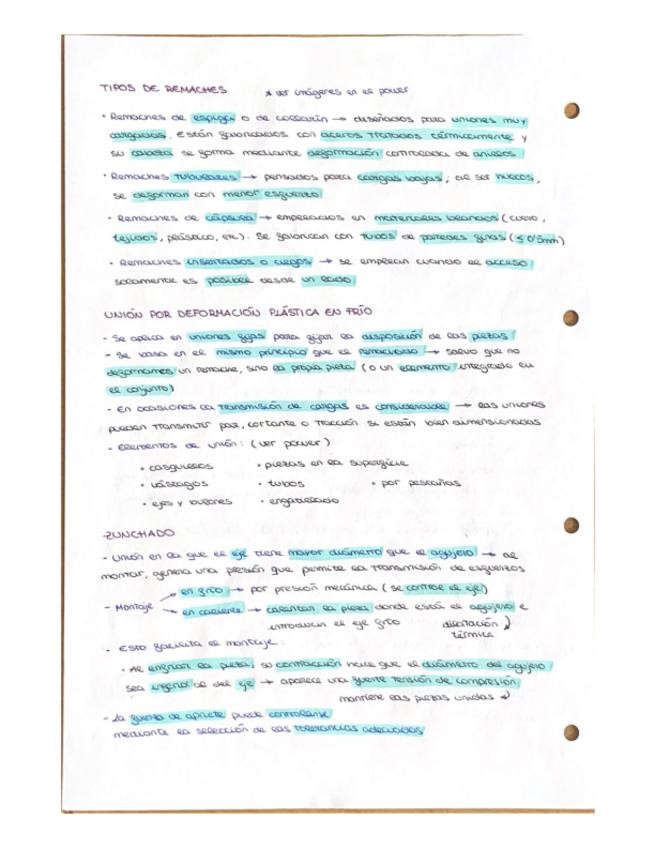 TIPOS DE REMACHES * ver imágenes en el power
• Remaches de espiga o de → diseñados para uniones muy
cargadas. Están fabricados con aceros tratados térmicamente y
su cabeza se forma mediante deformación controlada de anillos.
• Remaches tubulares → pensados para cargas bajas; al ser huecos,
se deforman con menor esfuerzo
• Remaches de cápsula → empleados en materiales blandos (cuero,
tejidos, plástico, etc). Se fabrican con tubos de paredes finas (≤ 0'5mm)
• Remaches insertados o ciegos → se emplean cuando el acceso
solamente es posible desde un lado
UNIÓN POR DEFORMACIÓN PLÁSTICA EN FRÍO
- Se aplica en uniones fijas para fijar la disposición de las piezas
- Se basa en el mismo principio que el remachado → salvo que no
deformamos un remache, sino la propia pieza (o un elemento integrado en
el conjunto)
- En ocasiones la transmisión de cargas es considerable → las uniones
pueden transmitir par, cortante o tracción si están bien dimensionadas
- Elementos de unión: (ver power)
• casquillos • piezas en la superficie
• vástagos • tubos • por pestañas
• ejes y bulones • engatillado
ZUNCHADO
- Unión en la que el eje tiene mayor diámetro que el agujero → al
montar, genera una presión que permite la transmisión de esfuerzos
- Montaje → en frío → por presión mecánica (se controle el eje)
→ en caliente → calentar la pieza donde está el agujero e
introducir el eje frío dilatación térmica
- Esto facilita el montaje:
• Al enfriar la pieza, su contracción hace que el diámetro del agujero
sea inferior al del eje → aparece una fuerte tensión de compresión
mantiene las piezas unidas
- La fuerza de apriete puede controlarse
mediante la selección de las tolerancias adecuadas